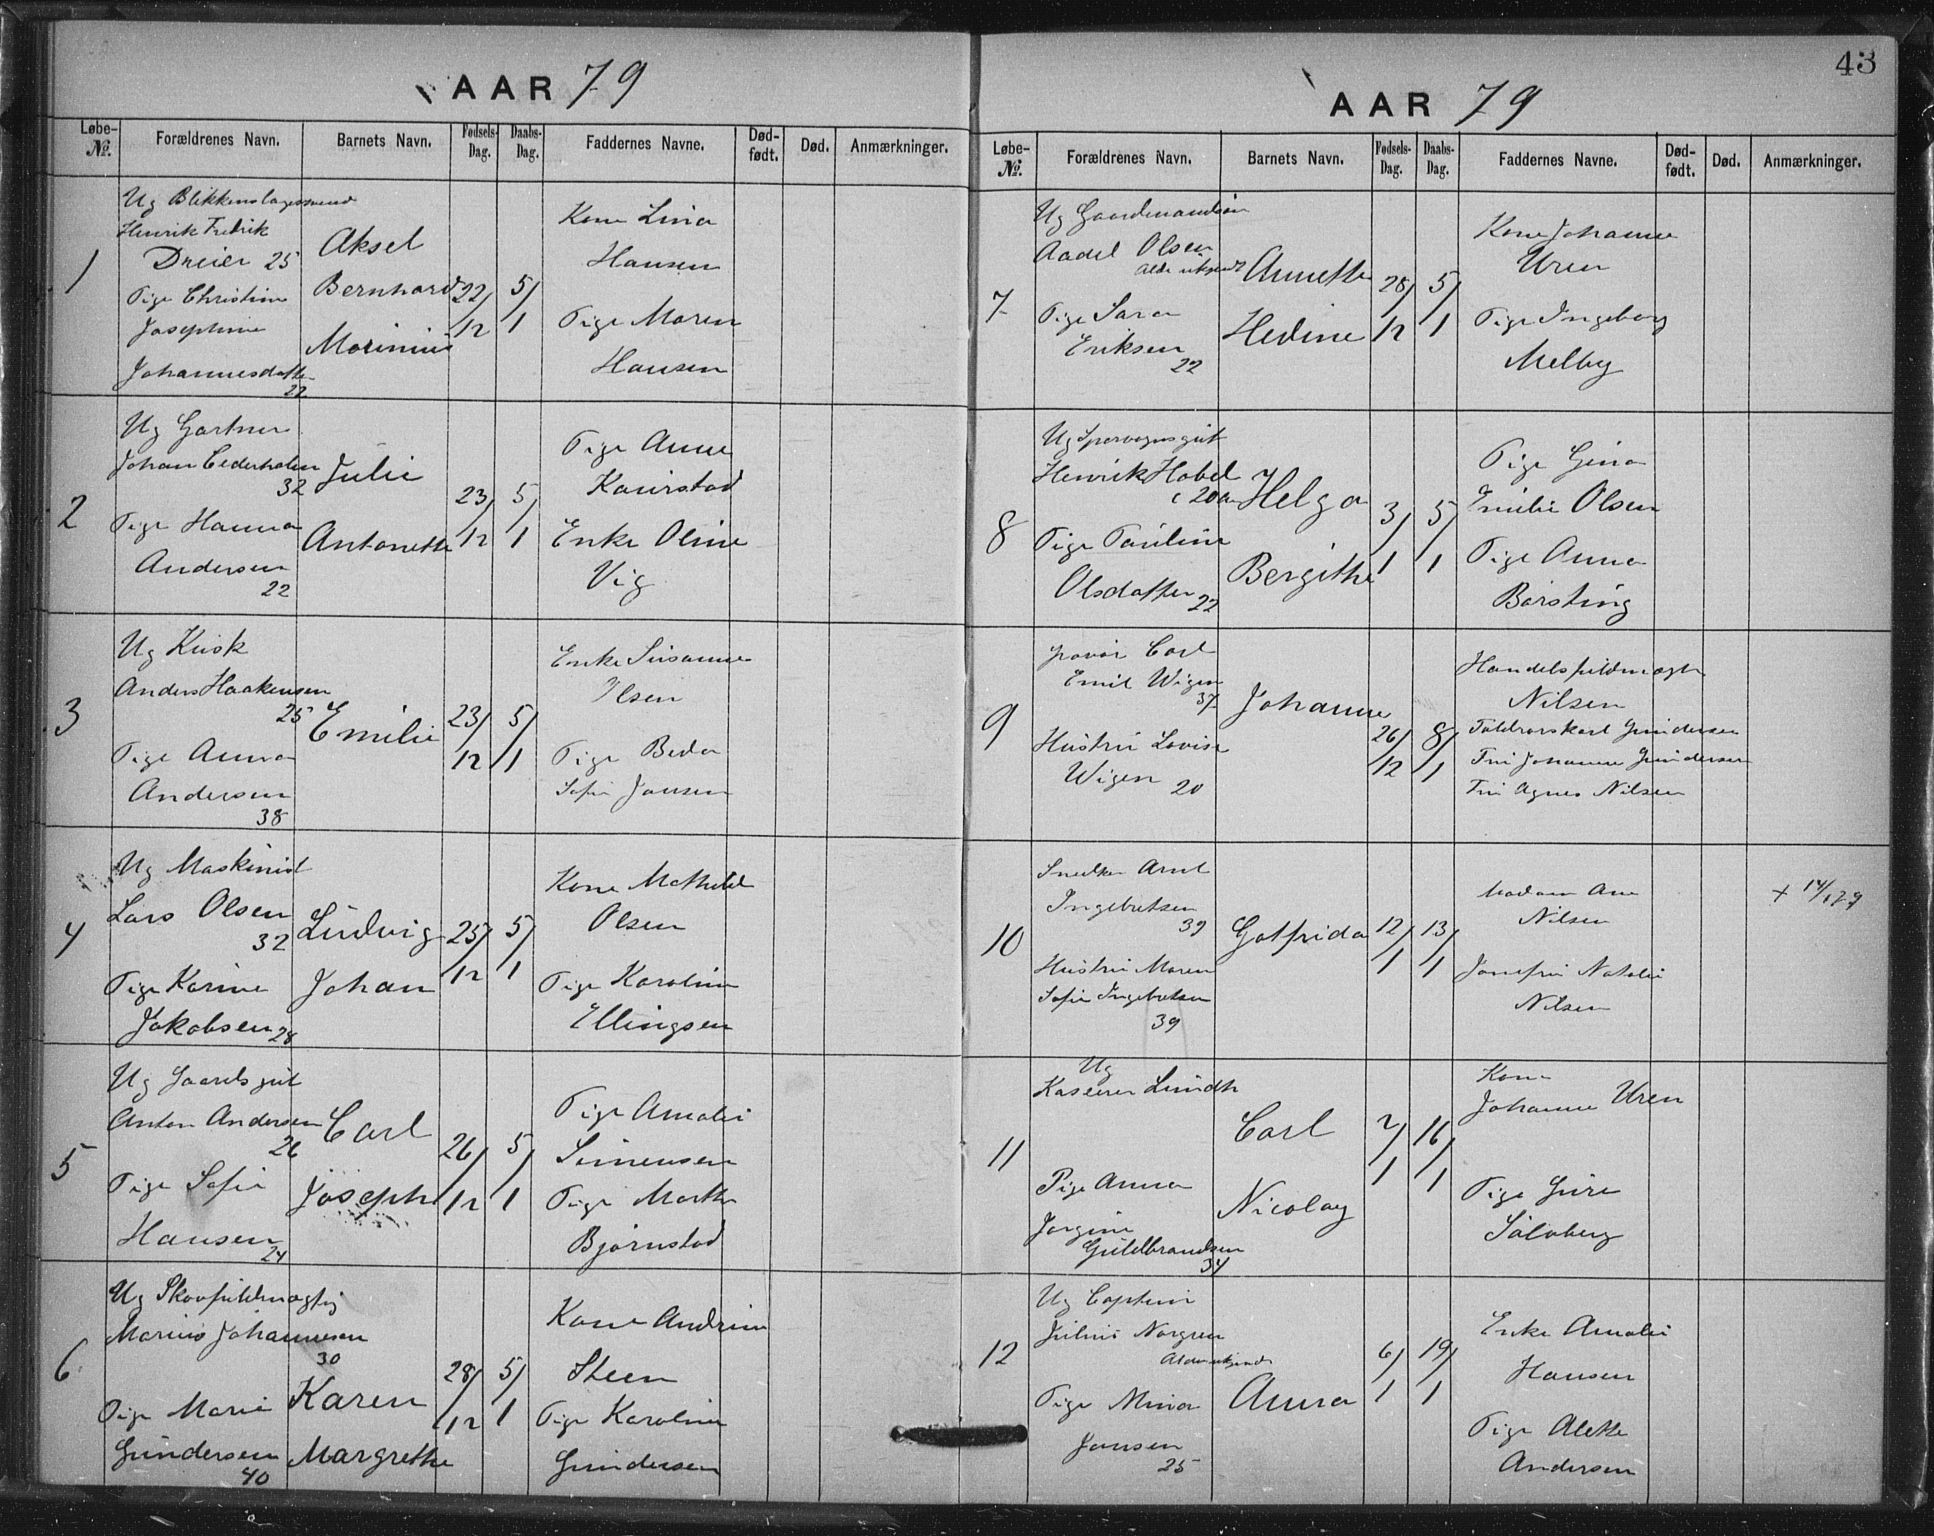 AAR 79
Løbe-No. Forældrenes Navn. Barnets Navn. Fødsels-Dag. Daabs-Dag. Faddernes Navne. Død-født. Død. Anmærkninger.
1
Ug Blikkenslagersvend
Henrik Fredrik
Dreier 25
Pige Christine
Josephine
Johannesdatter
22
Aksel
Bernhard
Marinius
22/12
5/1
Kone Lina
Hansen
Pige Maren
Hansen
2
Ug Gartner
Johan Cederholm
32
Pige Hanna
Andersen
22
Julie
Antonette
23/12
5/1
Pige Anne
Kaurstad
Enke Oline
Vig
3
Ug Kusk
Anders Haakensen
25
Pige Anna
Andersen
38
Emilie
23/12
5/1
Enke Susanne
Olsen
Pige Beda
Sofie Jansen
4
Ug Maskinist
Lars Olsen
32
Pige Karine
Jakobsen 28
Ludvig
Johan
25/12
5/1
Kone Mathilde
Olsen
Pige Karoline
Ellingsen
5
Ug Gaardsgut
Anton Andersen
26
Pige Sofie
Hansen
24
Carl
Joseph
26/12
5/1
Pige Amalie
Simensen
Pige Marthe
Bjørnstad
6
Ug Skovfuldmægtig
Marius Johannesen
30
Pige Marie
Gundersen
40
Karen
Margrethe
28/12
5/1
Kone Andrine
Steen
Pige Karoline
Gundersen
43
AAR 79
Løbe-No. Forældrenes Navn. Barnets Navn. Fødsels-Dag. Daabs-Dag. Faddernes Navne. Død-født. Død. Anmærkninger.
7
Ug Gaardmandsøn
Aadel Olsen
Alder ukjendt
Pige Sara
Eriksen
22
Annette
Hedine
28/12
5/1
Kone Johanne
Uren
Pige Ingeborg
Melby
8
Ug Sporvognsgut
Henrik Habel
c 20 a
Pige Pauline
Olsdatter 22
Helga
Bergithe
3/1
5/1
Pige Gina
Emilie Olsen
Pige Anna
Børsting
9
Carl
Emil Wigen
37
Hustru Lovise
Wigen 20
Johanne
26/12
8/1
Handelsfuldmægt
Nilsen
Toldrorskarl Gundersen
Fru Johanne Gundersen
Fru Agnes Nilsen
10
Snedker Arnt
Ingebretsen
39
Hustru Maren
Sofie Ingebretsen
39
Gotfrida
12/1
13/1
Madam Ane
Nilsen
Jomfru Natalie
Nilsen
+ 14/1 79
11
Ug
Kaserer Lundh
Pige Anna
Jørgine
Guldbrandsen
34
Carl
Nicolay
2/1
16/1
Kone
Johanne Uren
Pige Gure
Sølvberg
12
Ug Captein
Julius Norgren
Alder ukjendt
Pige Mina
Jansen
25
Anna
6/1
19/1
Enke Amalie
Hansen
Pige Alette
Andersen